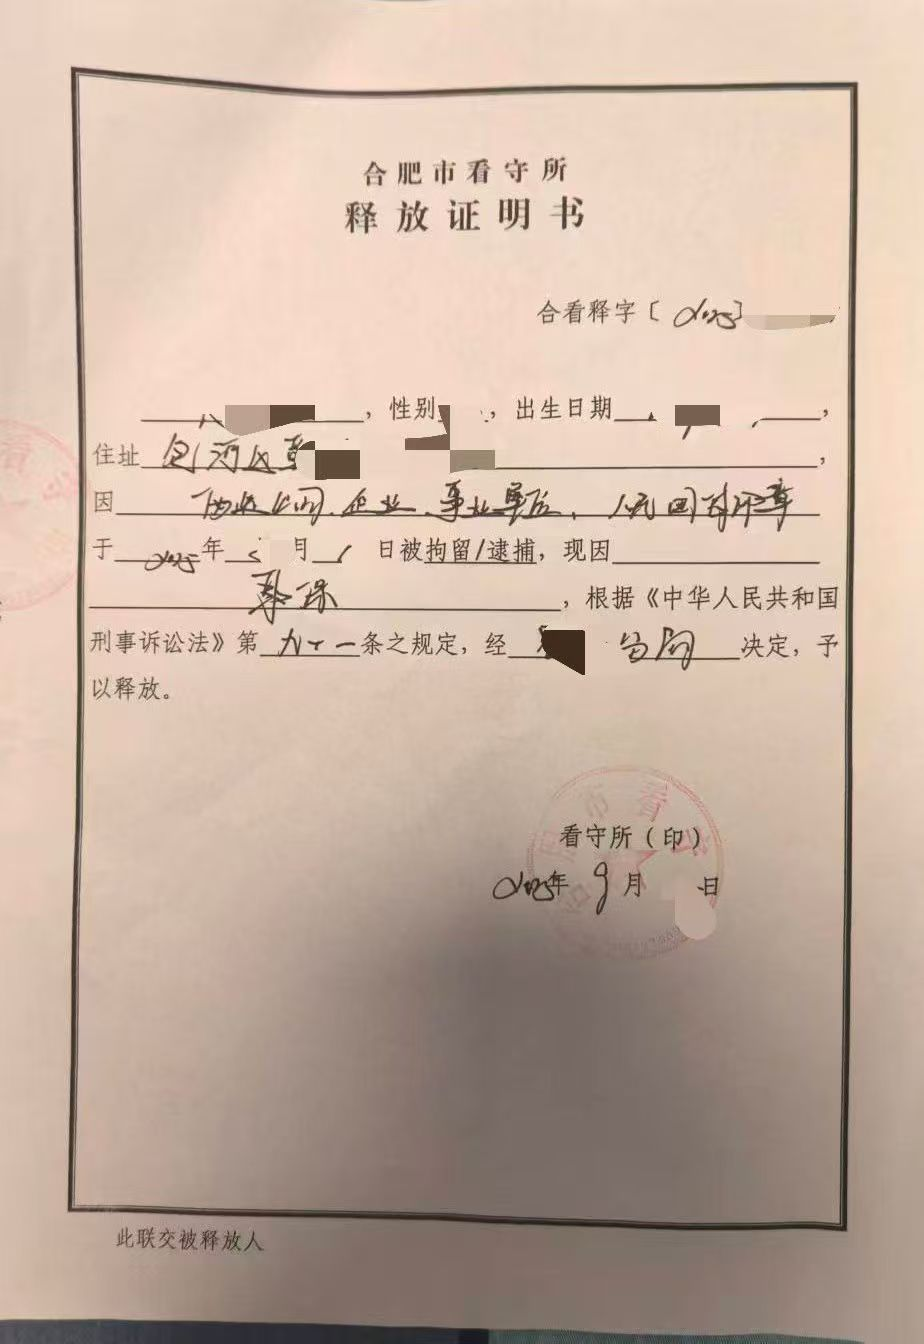 合肥市看守所
释放证明书
合看释字〔2025〕
，性别，出生日期，
住址 包河区
因 伪造公司、企业、事业单位、人民团体印章
于2025年 月 日被拘留/逮捕，现因
取保，根据《中华人民共和国
刑事诉讼法》第九十一条之规定，经 分局决定，予
以释放。
看守所（印）
2025年9月 日
此联交被释放人